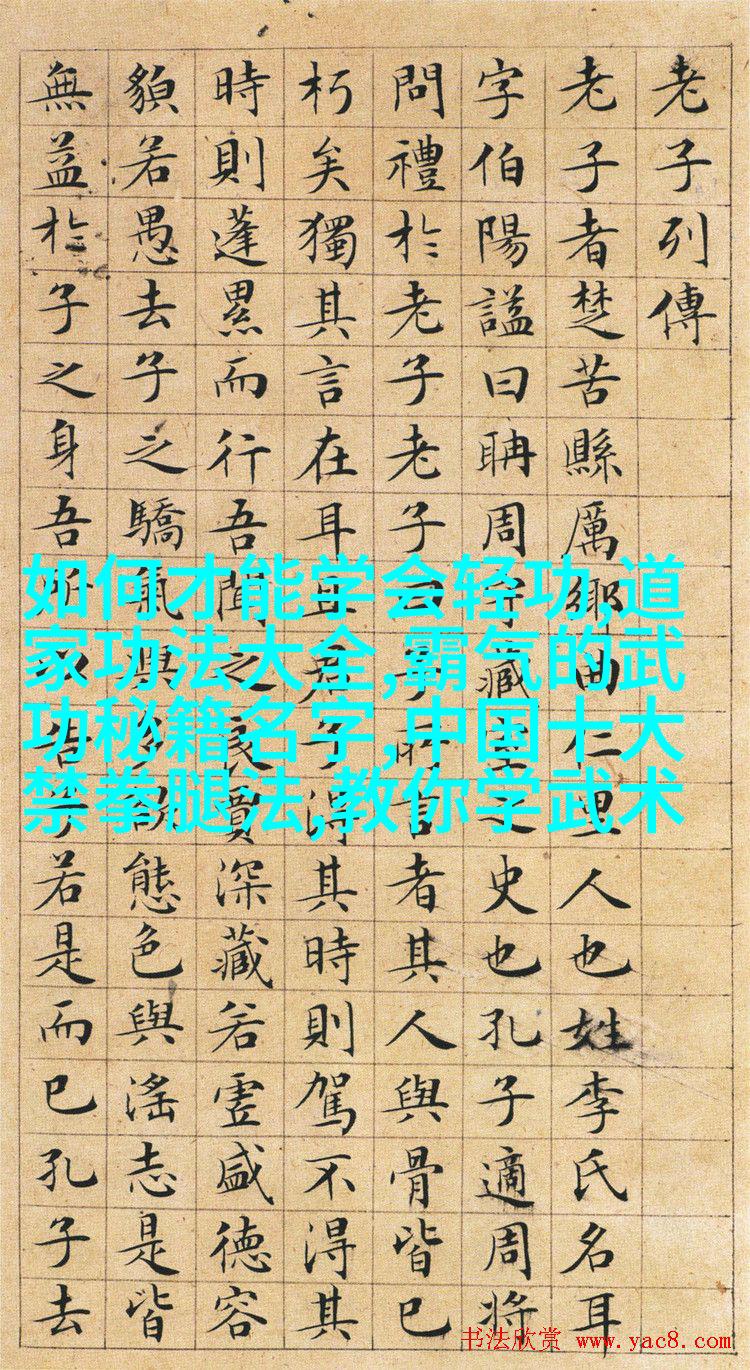 老子列傳
老子者楚苦縣厲鄉曲仁里人也姓李氏名耳
字伯陽謚曰耼周守藏室之史也孔子適周將
問禮於老子老子曰子所言者其人與骨皆已
朽矣獨其言在耳且君子得其時則駕不得其
時則蓬累而行吾聞之良賈深藏若虛盛德容
貌若愚去子之驕氣與多欲態色與淫志是皆
無益於子之身吾所以告子若是而已孔子去
如何才能学会轻功,道
家功法大全,霸气的武
功秘籍名字,中国十大
禁拳腿法,教你学武术
书法欣赏 www.yac8.com